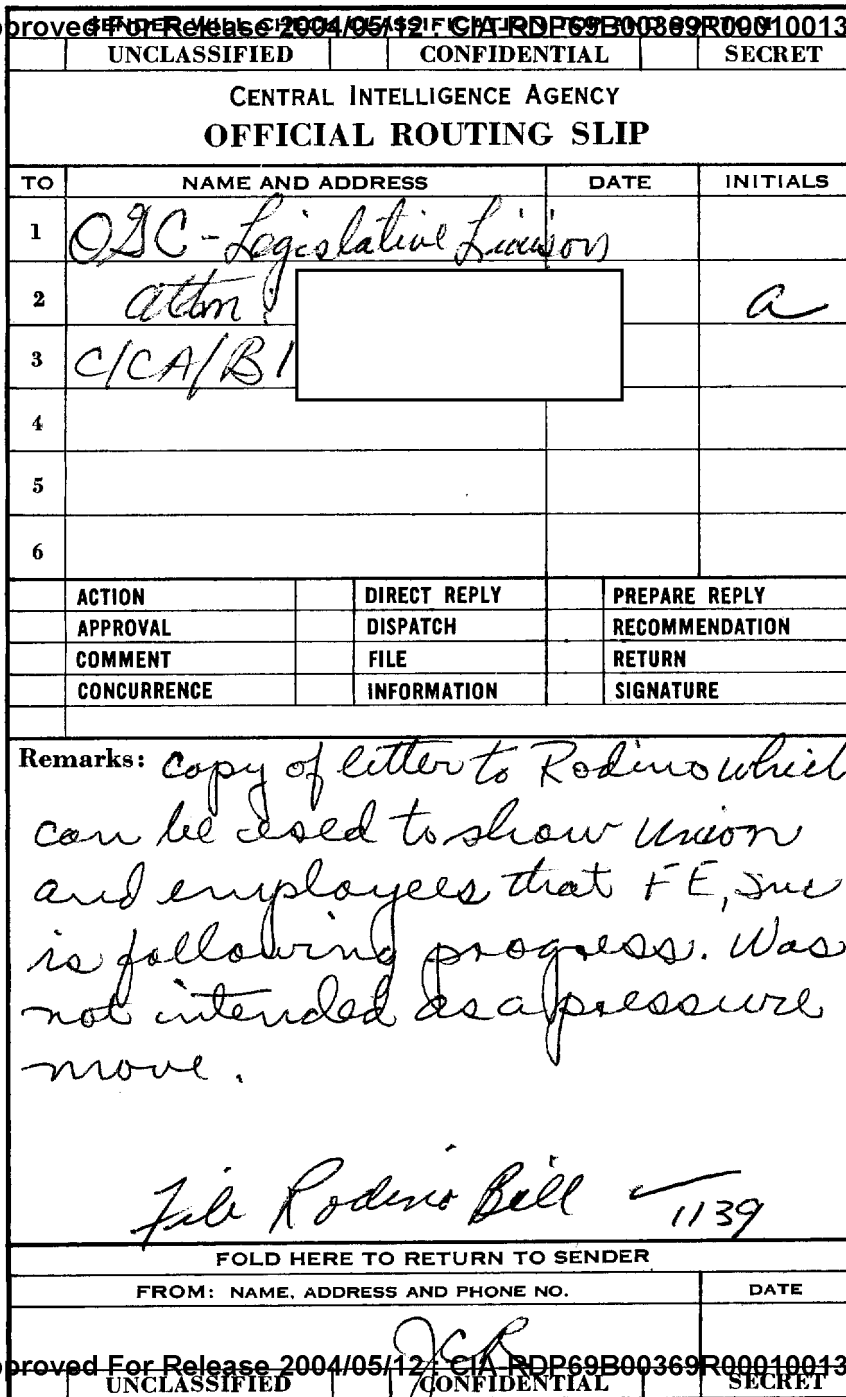 SENDER WILL CHECK CLASSIFICATION TOP AND BOTTOM
proved For Release 2004/05/12 : CIA-RDP69B00369R00010013
UNCLASSIFIED CONFIDENTIAL SECRET
CENTRAL INTELLIGENCE AGENCY
OFFICIAL ROUTING SLIP
TO NAME AND ADDRESS DATE INITIALS
1 OGC - Legislative Liaison
2 attn: a
3 C/CA/B1
4
5
6
ACTION DIRECT REPLY PREPARE REPLY
APPROVAL DISPATCH RECOMMENDATION
COMMENT FILE RETURN
CONCURRENCE INFORMATION SIGNATURE
Remarks: Copy of letter to Rodino which
can be used to show Union
and employees that FE, Inc
is following progress. Was
not intended as a pressure
move.
File Rodino Bill 1139
FOLD HERE TO RETURN TO SENDER
FROM: NAME, ADDRESS AND PHONE NO. DATE
JCR
proved For Release 2004/05/12 : CIA-RDP69B00369R00010013
UNCLASSIFIED CONFIDENTIAL SECRET